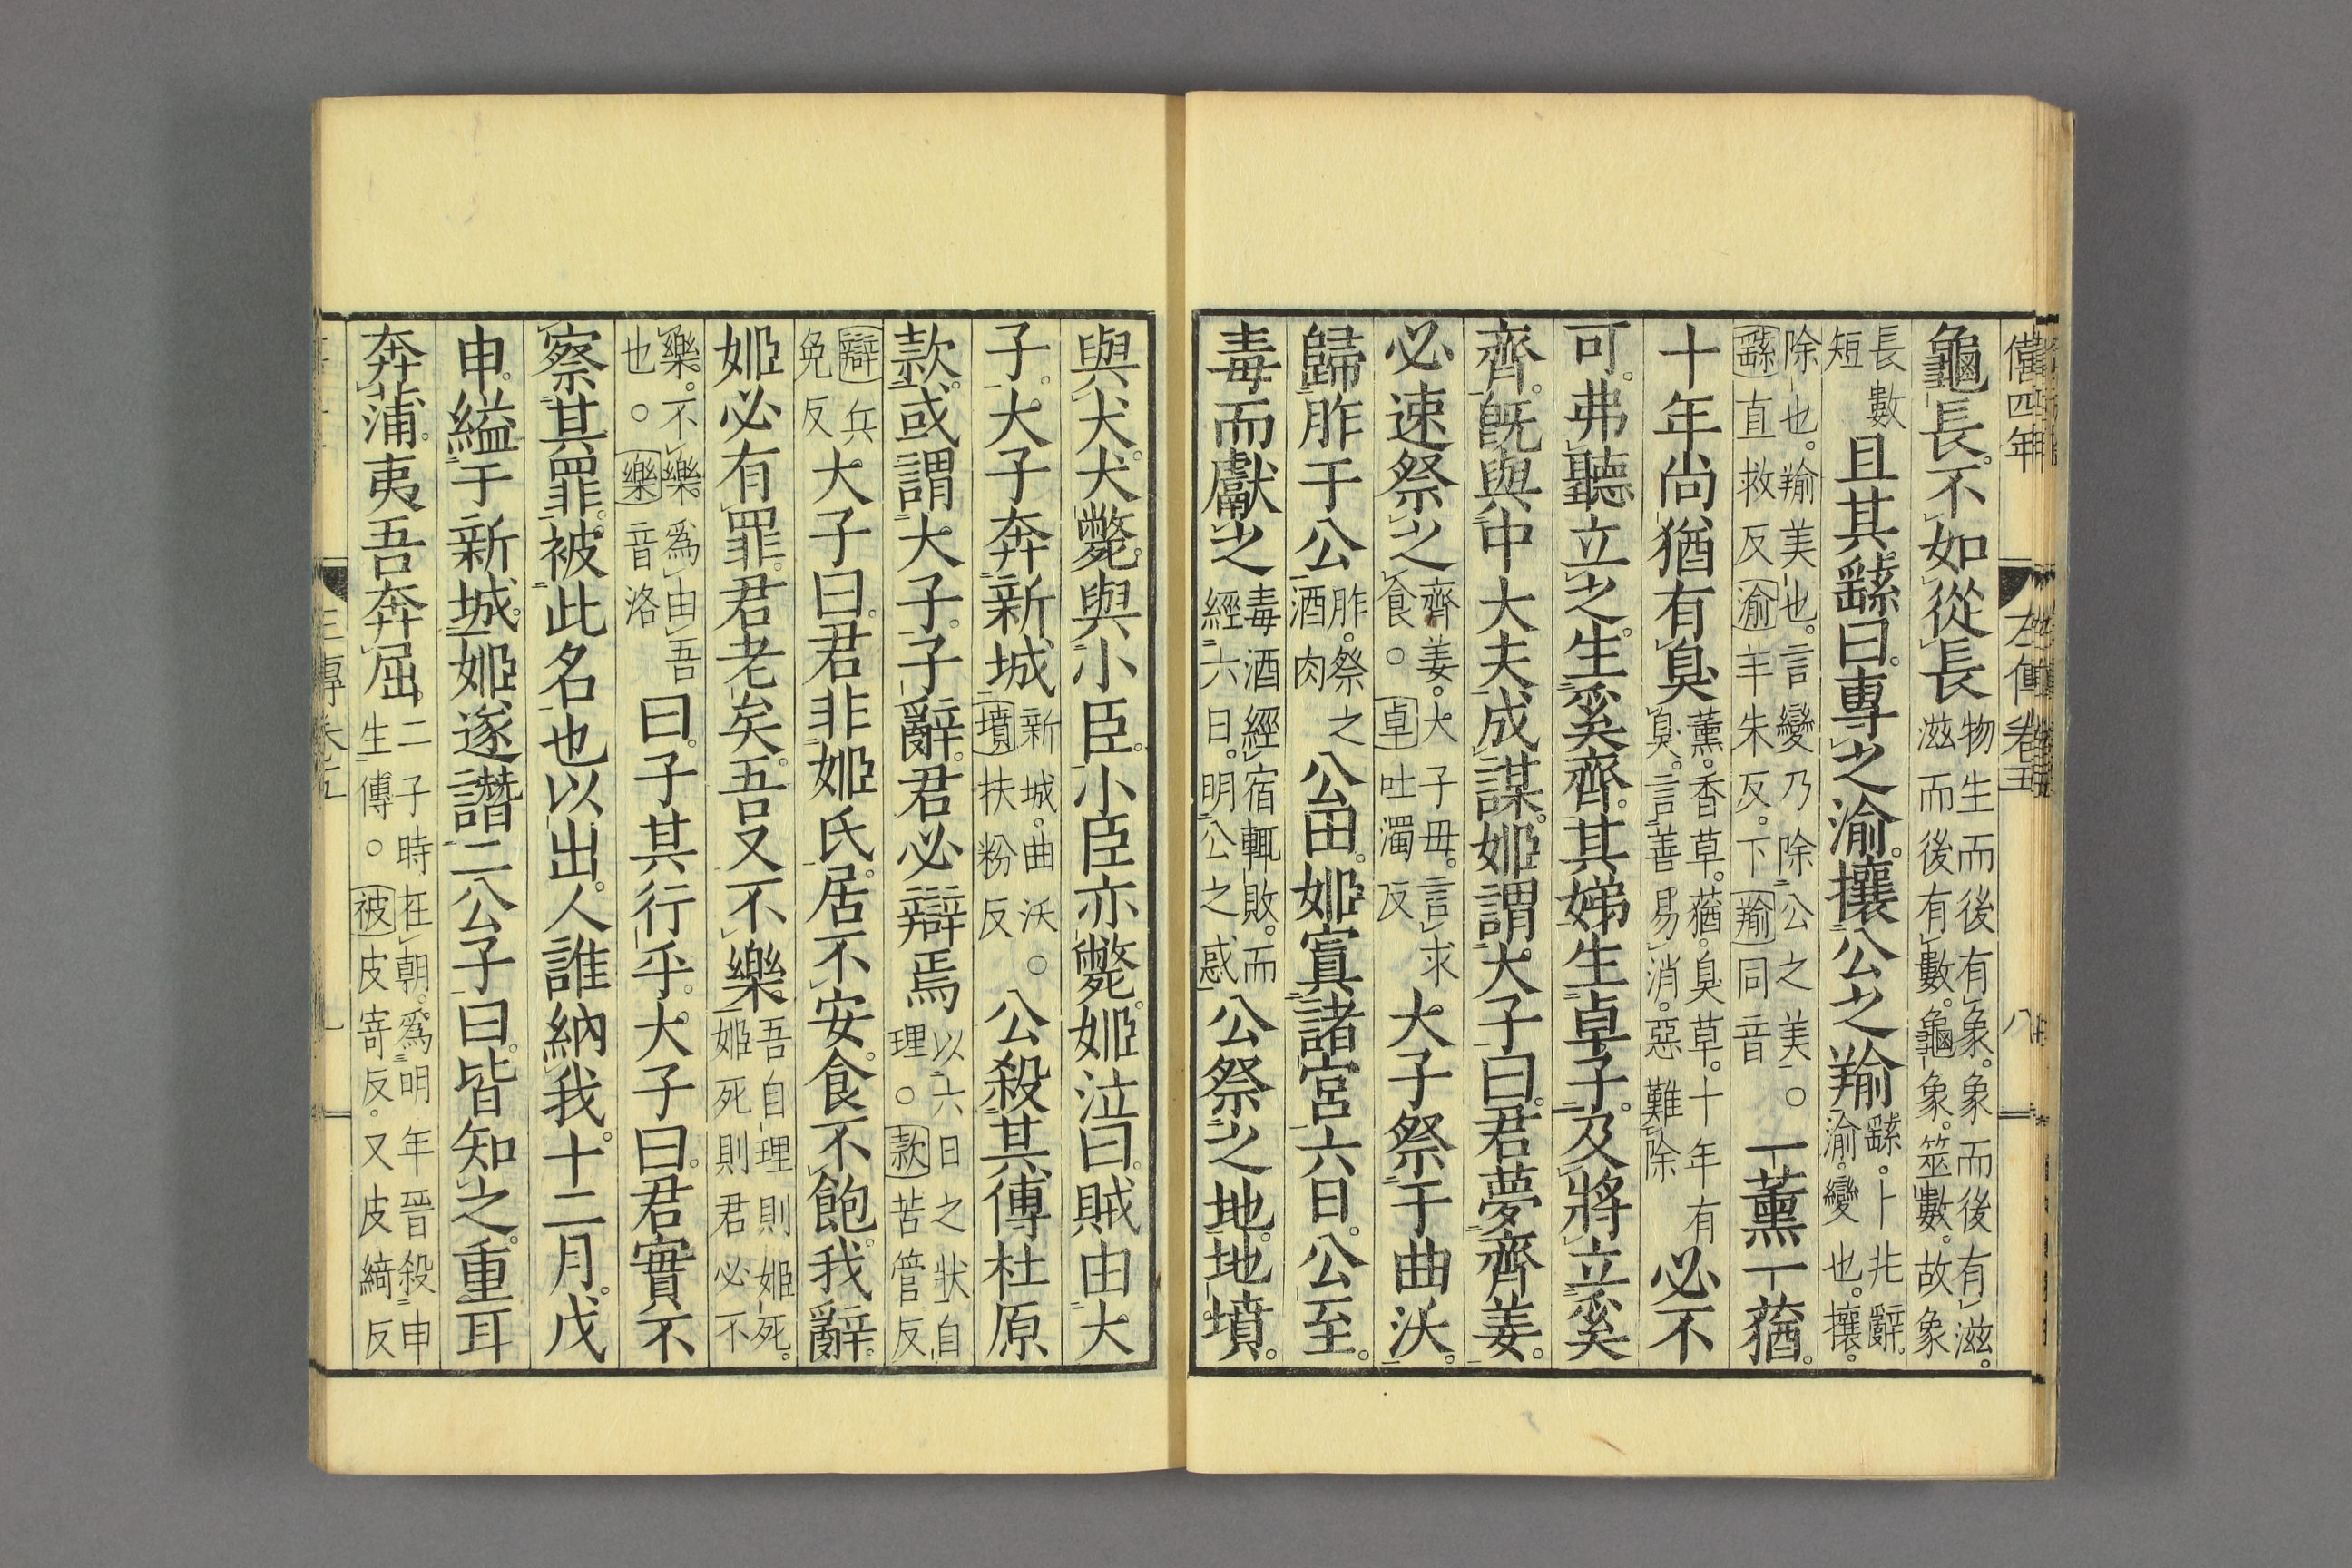 僖四年 左傳卷五 八
龜長不如從長物生而後有象象而後有滋滋而後有數龜象筮數故象
長數短且其繇曰專之渝攘公之羭繇卜兆辭渝變也攘
除也羭美也言變乃除公之美○繇直救反渝羊朱反下羭同音一薰一蕕
十年尚猶有臭薰香草蕕臭草十年有臭言善易消惡難除必不
可弗聽立之生奚齊其娣生卓子及將立奚
齊既與中大夫成謀姬謂大子曰君夢齊姜
必速祭之齊姜大子母言求食○卓吐濁反大子祭于曲沃
歸胙于公胙祭之酒肉公田姬寘諸宮六日公至
毒而獻之毒酒經宿輒敗而經六日明公之惑公祭之地地墳
與犬犬斃與小臣小臣亦斃姬泣曰賊由大
子大子奔新城新城曲沃○墳扶粉反公殺其傅杜原
款或謂大子子辭君必辯焉以六日之狀自理○款苦管反
辯兵免反大子曰君非姬氏居不安食不飽我辭
姬必有罪君老矣吾又不樂吾自理則姬死姬死則君必不
樂不樂爲由吾也○樂音洛曰子其行乎大子曰君實不
察其罪被此名也以出人誰納我十二月戊
申縊于新城姬遂譖二公子曰皆知之重耳
奔蒲夷吾奔屈二子時在朝爲明年晉殺申生傳○被皮寄反又皮綺反